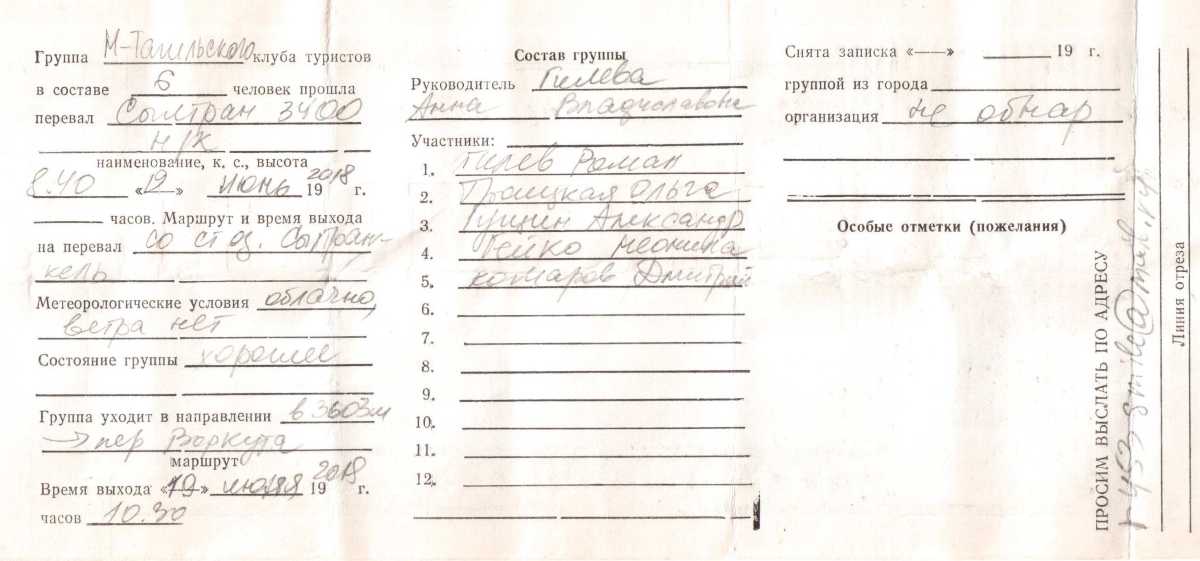 Группа Н-Тагильского клуба туристов
в составе 6 человек прошла
перевал Сылтран 3400
н/к
наименование, к. с., высота
8.40 «19» июнь 19 2018 г.
часов. Маршрут и время выхода
на перевал со ст оз. Сылтран-
кель
Метеорологические условия облачно,
ветра нет
Состояние группы хорошее
Группа уходит в направлении в 3603м
→ пер Воркута
маршрут
Время выхода «19» июня 19 2018 г.
часов 10.30
Состав группы
Руководитель Гилева
Анна Владиславовна
Участники:
1. Гилев Роман
2. Троицкая Ольга
3. Гущин Александр
4. Гейко
5. Комаров Дмитрий
6.
7.
8.
9.
10.
11.
12.
Снята записка «—» 19 г.
группой из города
организация не обнар
Особые отметки (пожелания)
ПРОСИМ ВЫСЛАТЬ ПО АДРЕСУ
Линия отреза